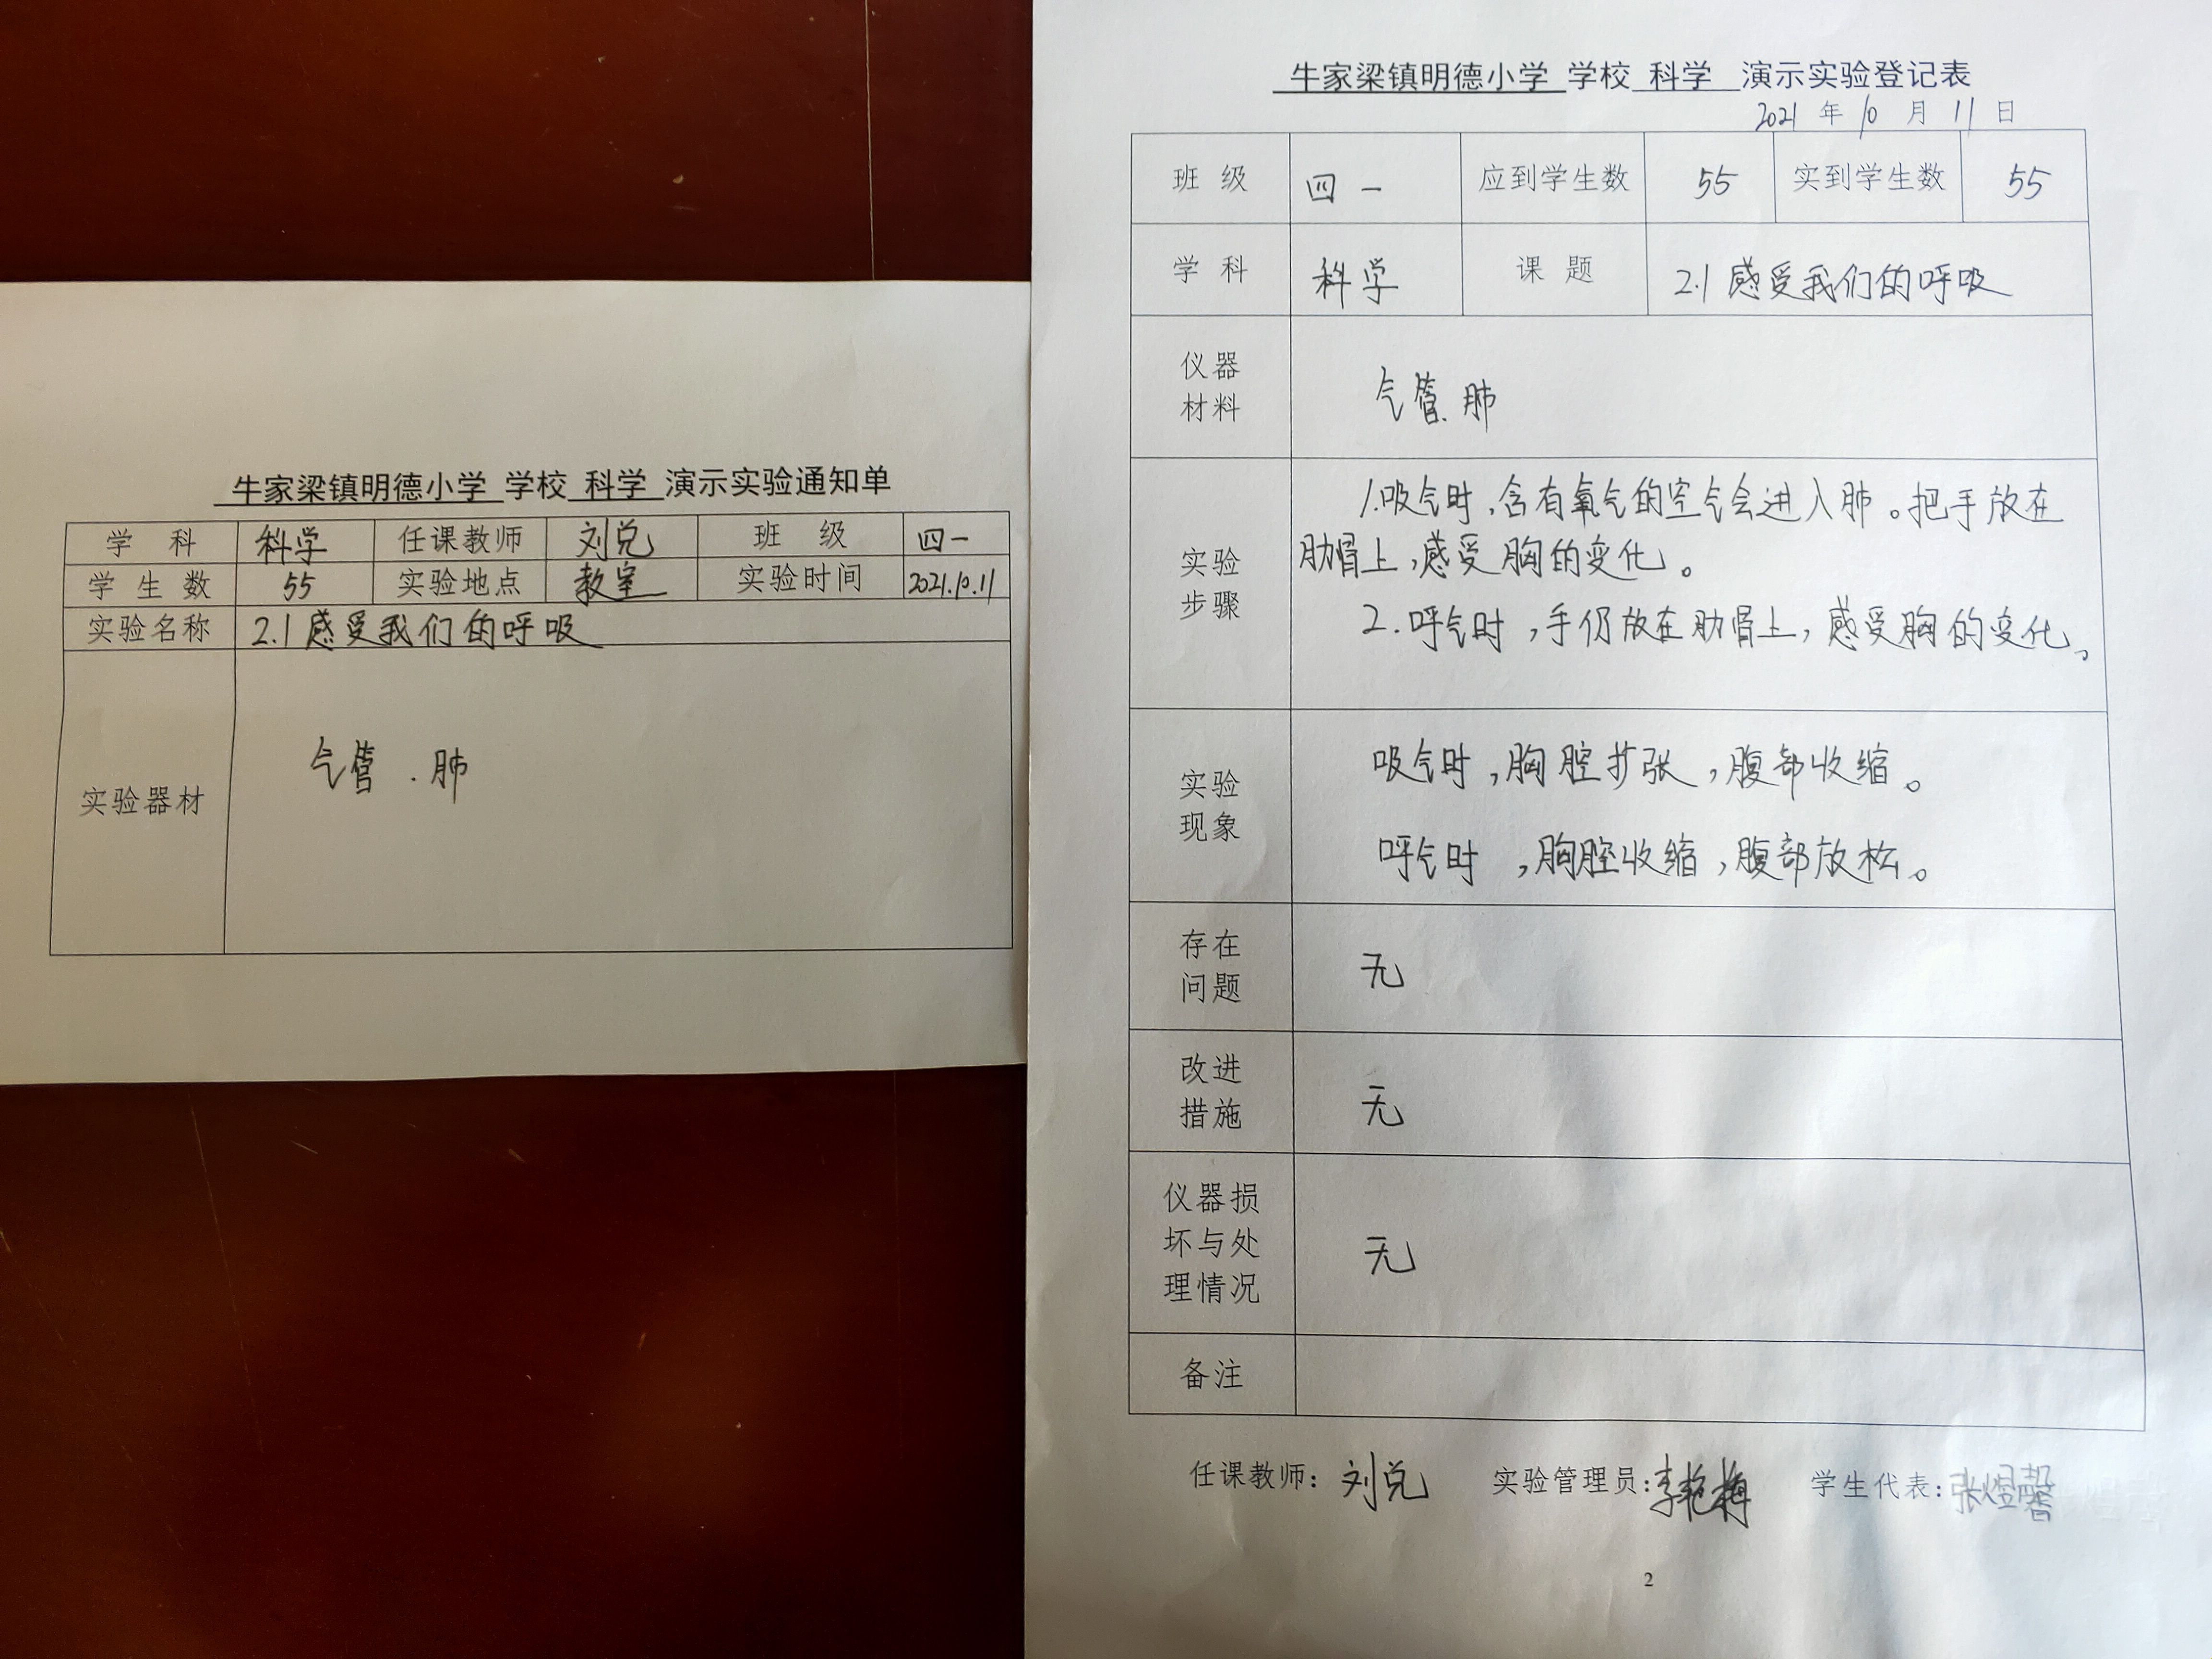 牛家梁镇明德小学 学校 科学 演示实验通知单
学 科 科学 任课教师 刘兑 班 级 四一
学 生 数 55 实验地点 教室 实验时间 2021.10.11
实验名称 2.1 感受我们的呼吸
实验器材 气管、肺
牛家梁镇明德小学 学校 科学 演示实验登记表
2021 年 10 月 11 日
班 级 四一 应到学生数 55 实到学生数 55
学 科 科学 课 题 2.1 感受我们的呼吸
仪器
材料
气管、肺
实验
步骤
1.吸气时,含有氧气的空气会进入肺。把手放在
肋骨上,感受胸的变化。
2.呼气时,手仍放在肋骨上,感受胸的变化。
实验
现象
吸气时,胸腔扩张,腹部收缩。
呼气时,胸腔收缩,腹部放松。
存在
问题
无
改进
措施
无
仪器损
坏与处
理情况
无
备注
任课教师: 刘兑 实验管理员: 李艳梅 学生代表: 张煜馨
2